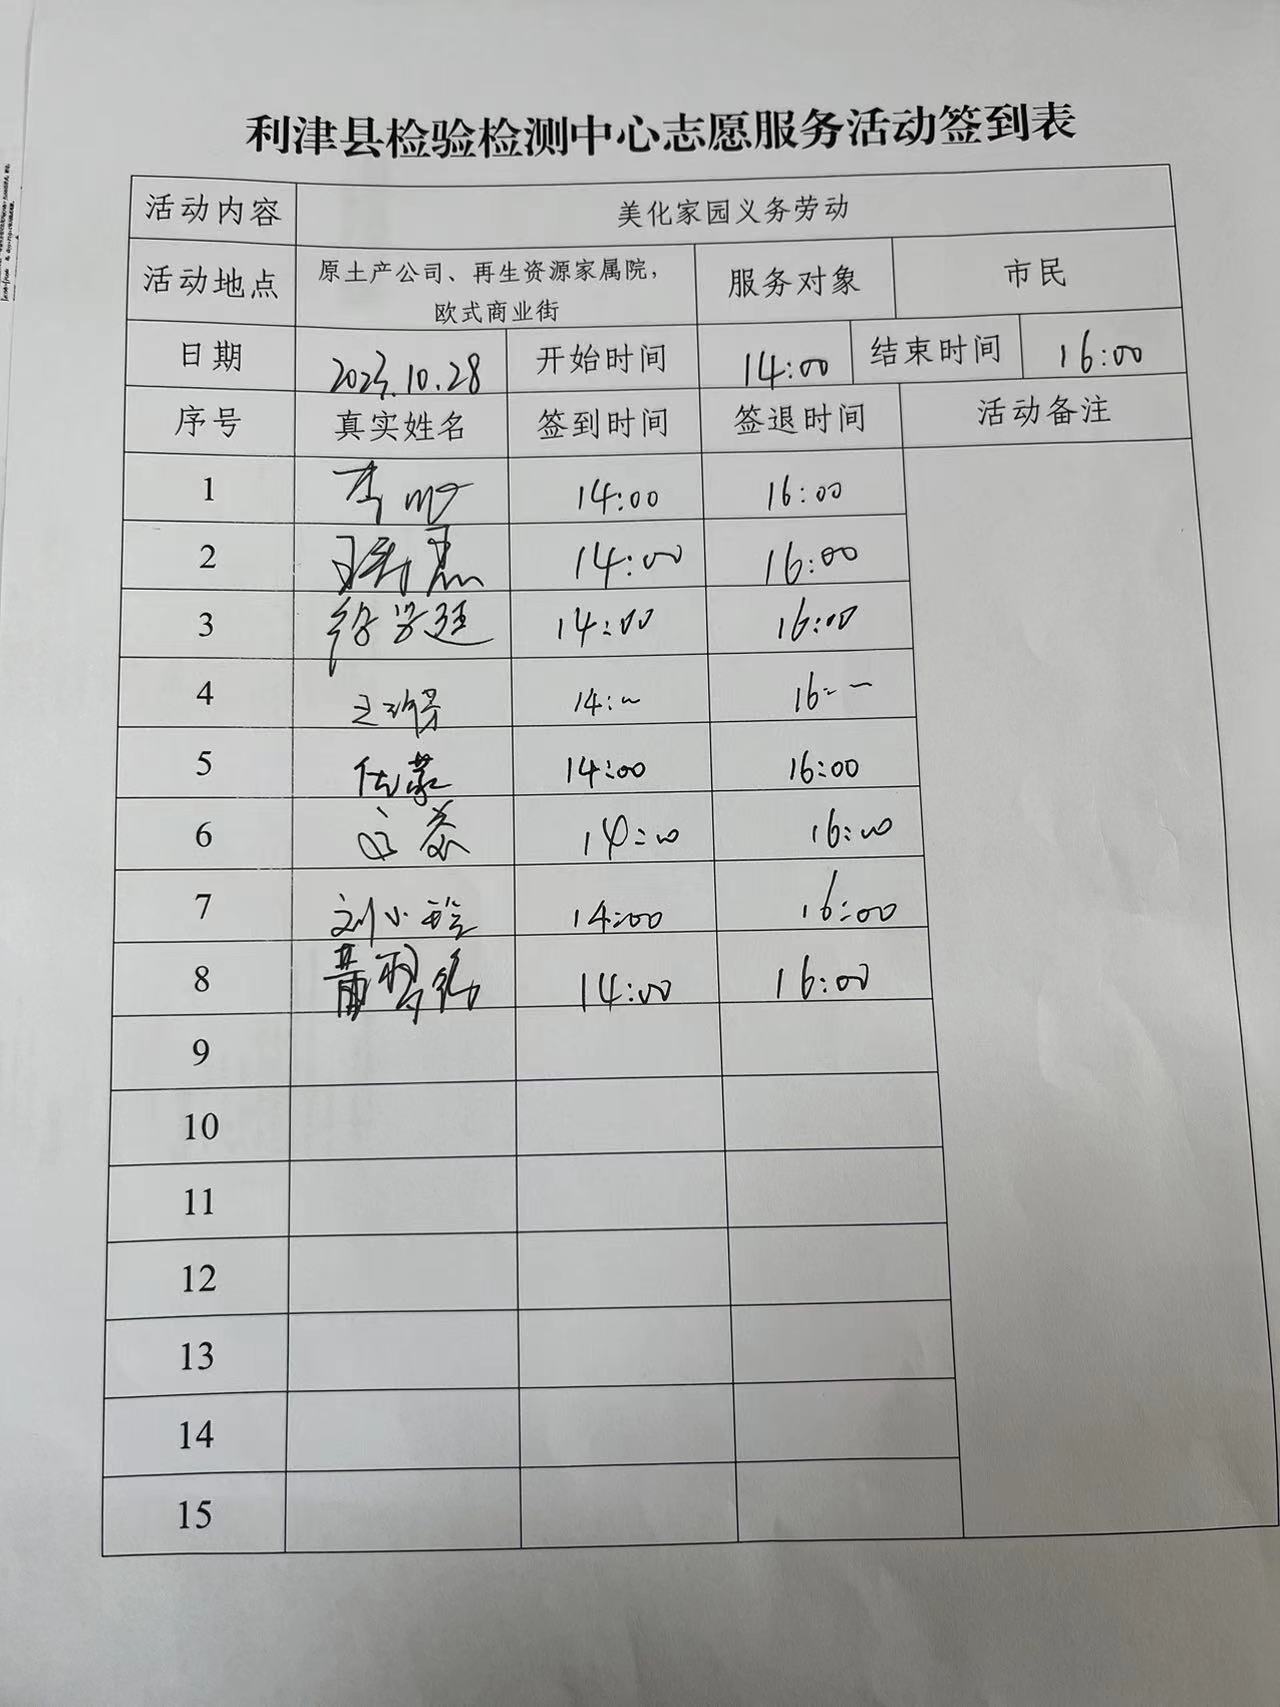 利津县检验检测中心志愿服务活动签到表
活动内容 美化家园义务劳动
活动地点 原土产公司、再生资源家属院，欧式商业街 服务对象 市民
日期 2023.10.28 开始时间 14:00 结束时间 16:00
序号 真实姓名 签到时间 签退时间 活动备注
1 14:00 16:00
2 14:00 16:00
3 14:00 16:00
4 14: 16:
5 任蒙 14:00 16:00
6 14:00 16:00
7 刘小玲 14:00 16:00
8 14:00 16:00
9
10
11
12
13
14
15